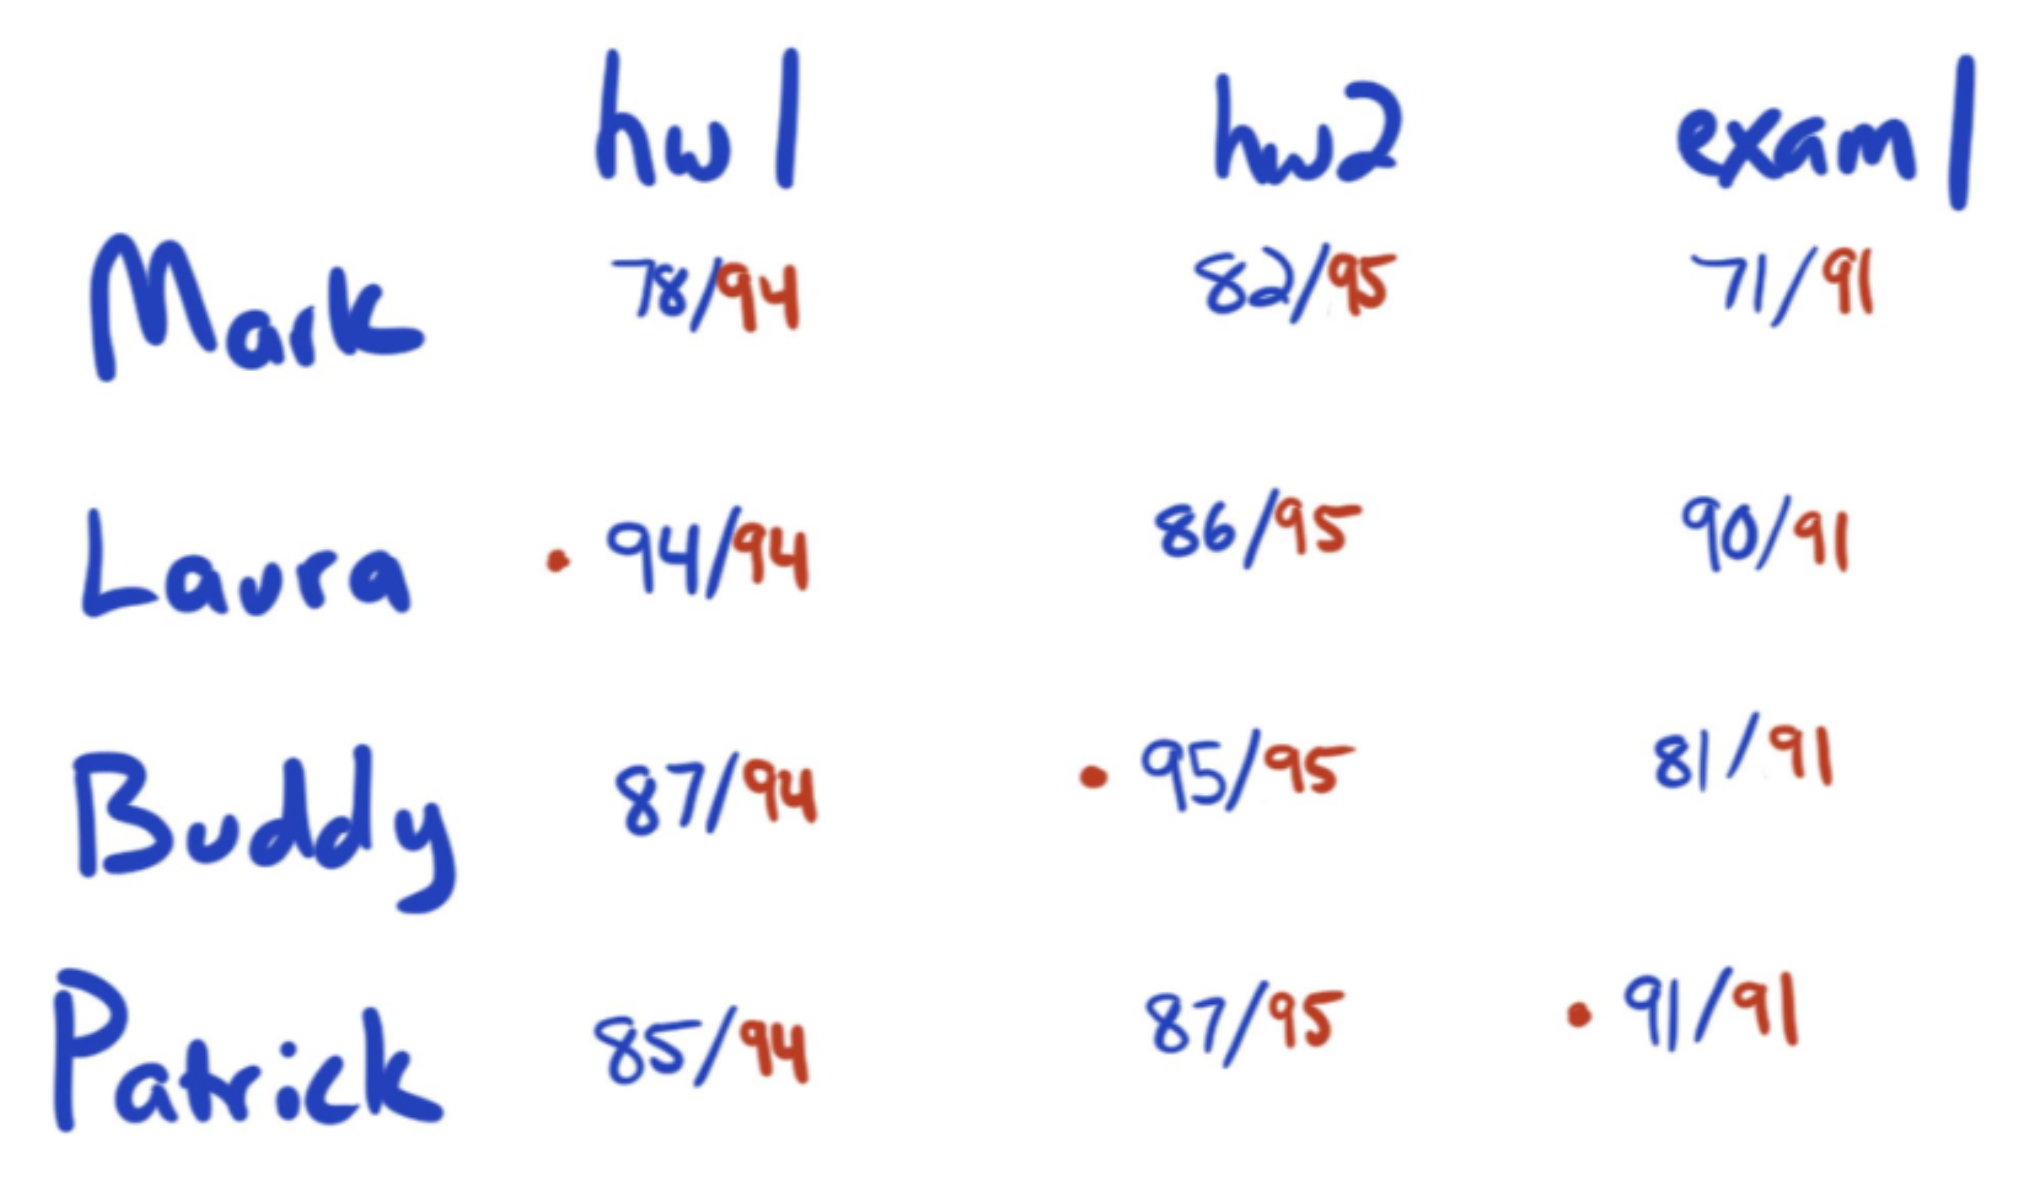 hw1 hw2 exam1
Mark 78/94 82/95 71/91
Laura 94/94 86/95 90/91
Buddy 87/94 95/95 81/91
Patrick 85/94 87/95 91/91